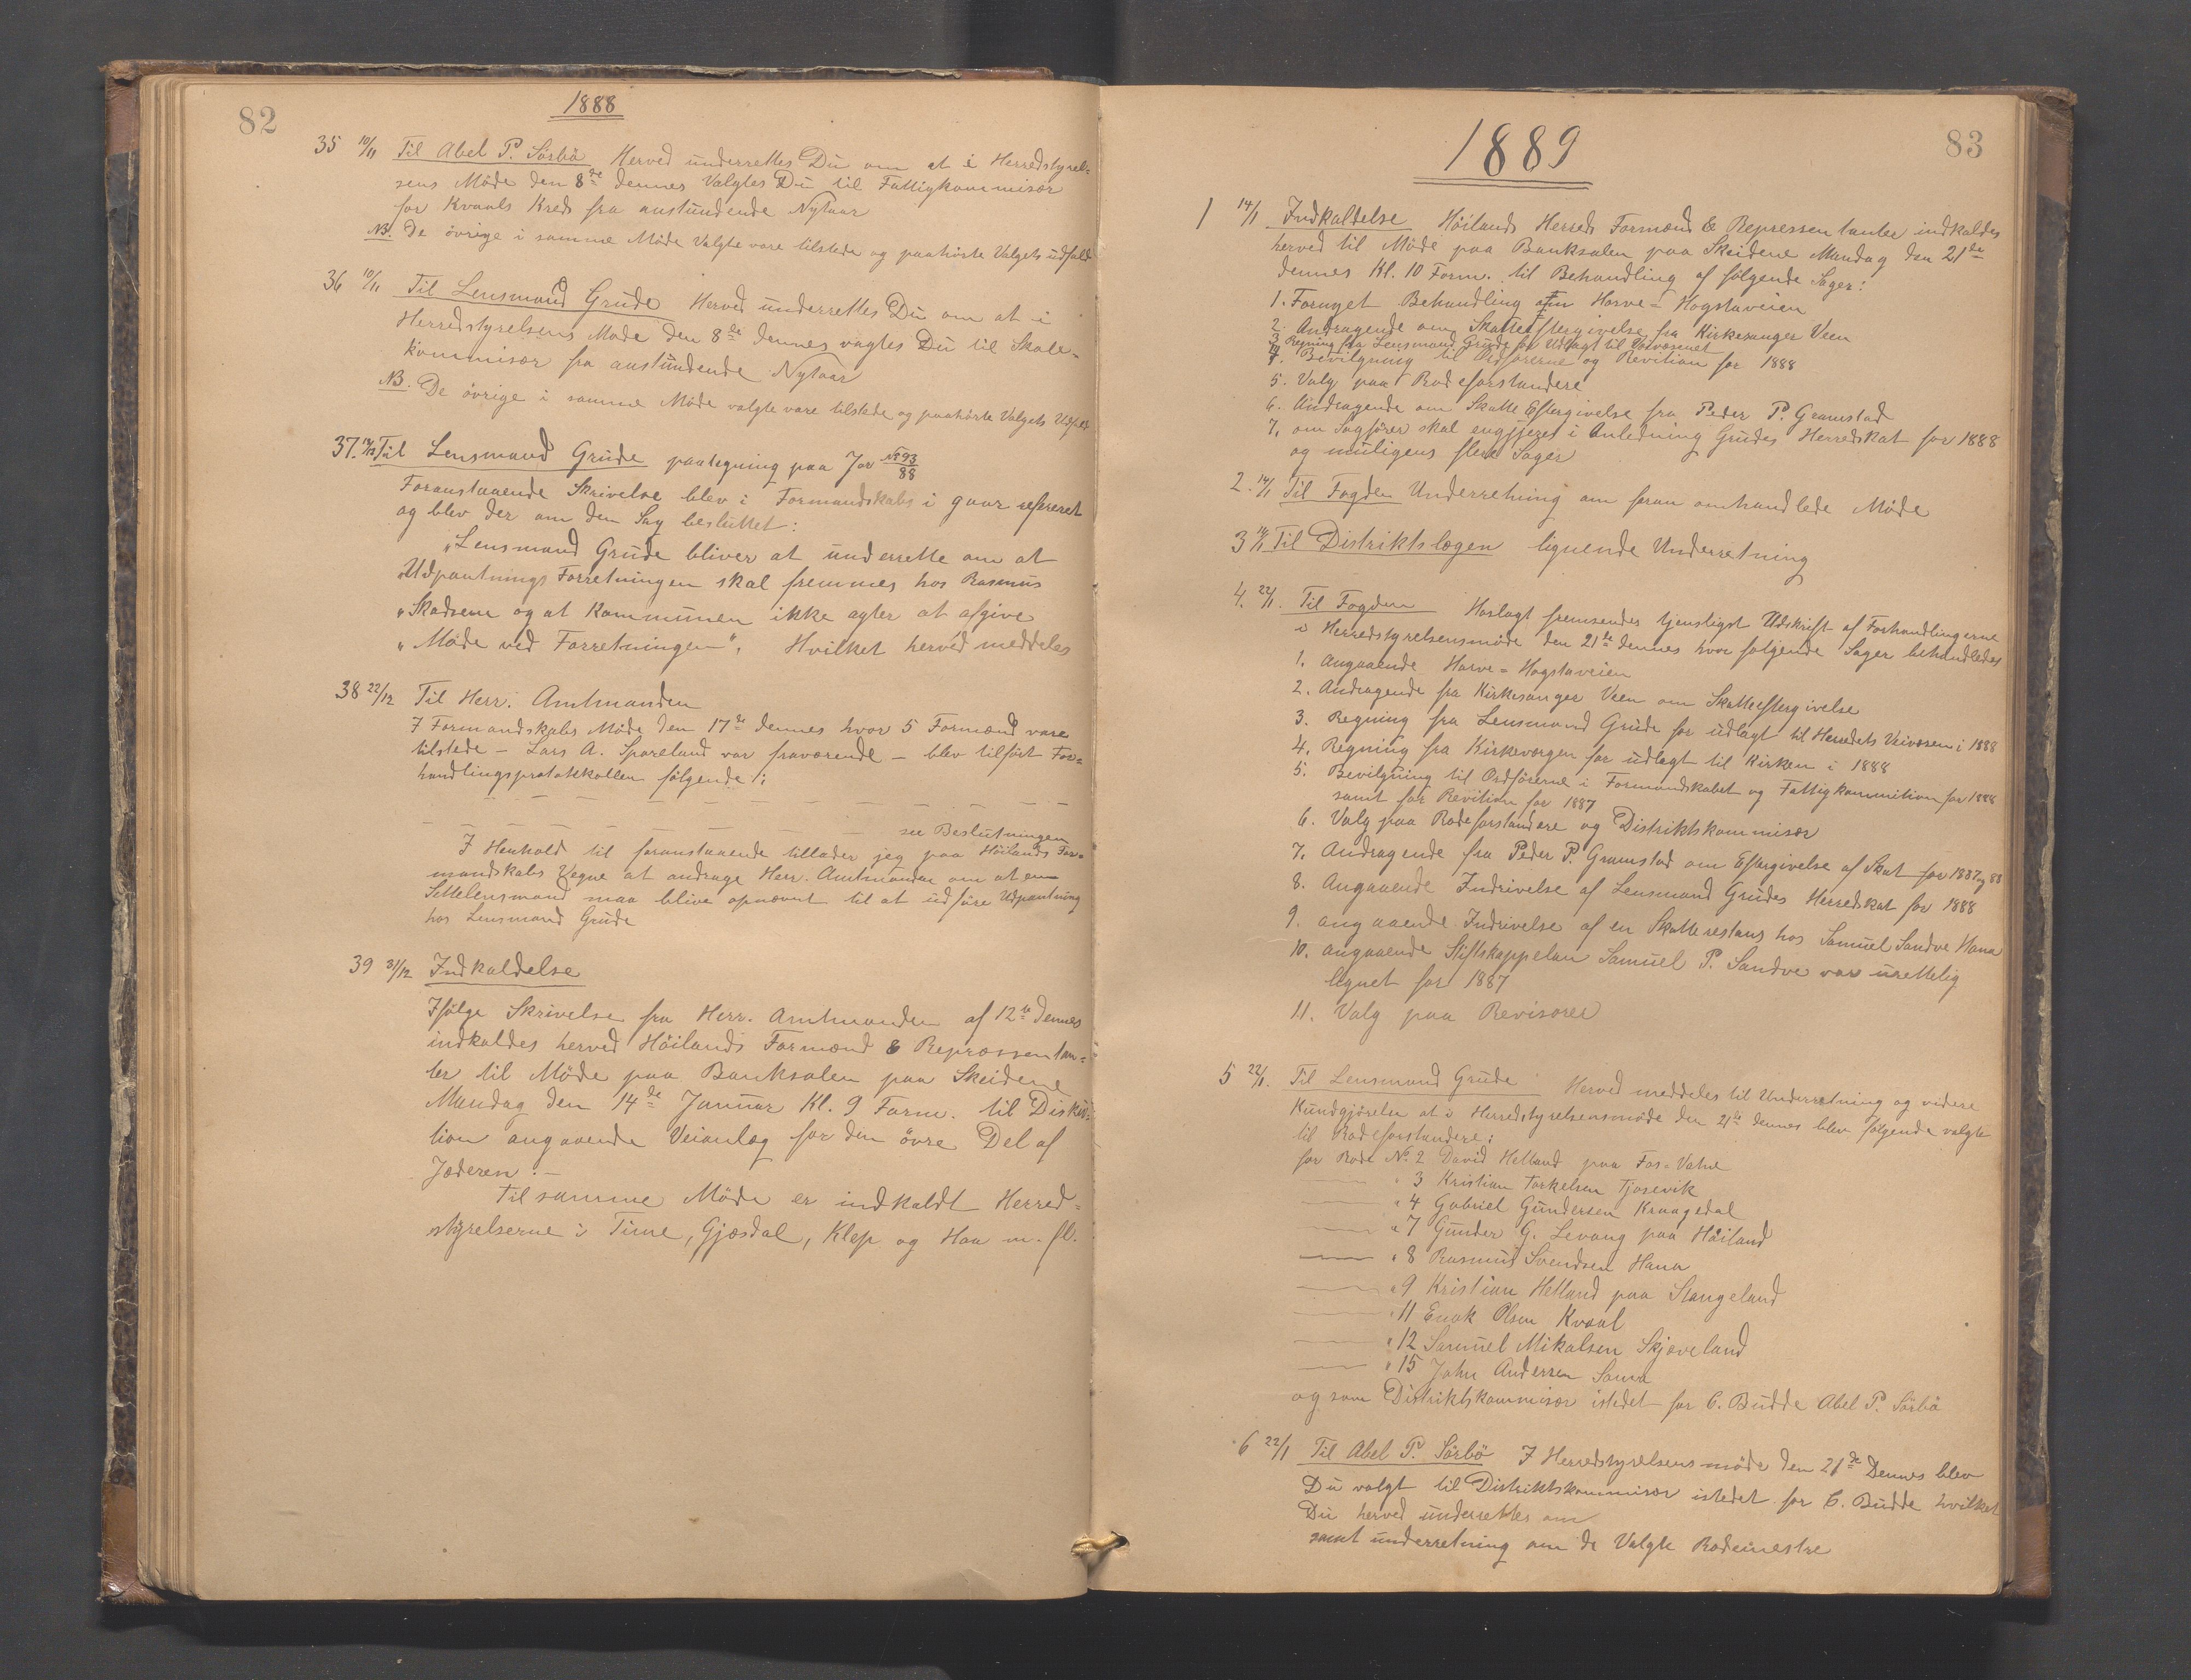 82
1888
35 10/11 Til Abel P. Sörbö Herved underrettes Du om at i Herredstyrel-
sens Möde den 8de dennes Valgtes Du til Fattigkommisær
for Kvaals Kreds fra anstundende Nytaar
NB. De övrige i samme Möde Valgte vare tilstede og paahörte Valgets udfald
36 10/11 Til Lensmand Grude Herved underrettes Du om at i
Herredstyrelsens Möde den 8de dennes vagtes Du til Skole-
kommisær fra anstundende Nytaar
NB. De övrige i samme Möde valgte vare tilstede og paahörte Valgets Udfald
37. 18/12 Til Lensmand Grude paategning paa Jor № 93/88
Foranstaaende Skrivelse blev i Formandskabs i gaar refereret
og blev der om den Sag besluttet:
"Lensmand Grude bliver at underrette om at
"Udpantnings Forretningen skal fremmes hos Rasmus
"Skadsem og at Kommunen ikke agter at afgive
"Möde ved Forretningen". Hvilket herved meddeles
38 22/12 Til Herr. Amtmanden
I Formandskabs Möde den 17de dennes hvor 5 Formænd vare
tilstede – Lars A. Spareland var fraværende – blev tilfört For-
handlingsprotokkollen fölgende:
– – – – – – – – – – – –
– – – – – – – – – se Beslutningen
I Henhold til foranstaaende tillader jeg paa Höilands For-
mandskabs Vegne at andrage Herr. Amtmanden om at en
Settelensmand maa blive opnævnt til at udföre Udpantning
hos Lensmand Grude
39 31/12 Indkaldelse
Ifölge Skrivelse fra Herr. Amtmanden af 12te dennes
indkaldes herved Höilands Formænd & Repræssentan-
ter til Möde paa Banksalen paa Skeidene
Mandag den 14de Januar Kl. 9 Form. til Diskus-
tion angaaende Veianlæg for den övre Del af
Jæderen. –
Til samme Möde er indkaldt Herred-
styrelserne i Time, Gjæsdal, Klep og Haa m. fl.
83
1889
1 14/1 Indkaldelse Höilands Herreds Formænd & Repressentanter indkaldes
herved til Möde paa Banksalen paa Skeidene Mandag den 21de
dennes Kl. 10 Form. til Behandling af fölgende Sager:
1. Fornyet Behandling om Horve-Hogstaveien
2. Andragende om Skatteeftergivelse fra Kirkesanger Veen
3 Regning fra Lensmand Grude for Udlagt til Veivæsenet
4. Bevilgning til Ordförerne og Revition for 1888
5. Valg paa Rodeforstandere
6. Andragende om Skatte Eftergivelse fra Peder P. Gramstad
7. om Sagförer skal engjæres i Anledning Grudes Herredskat for 1888
og muligens flere Sager
2. 14/1 Til Fogden Underretning om foran omhandlede Möde
3 14/1 Til Distriktslægen lignende Underretning
4. 22/1. Til Fogden Hoslagt fremsendes tjenstligst Udskrift af Forhandlingerne
i Herredstyrelsensmöde den 21de dennes hvor fölgende Sager behandledes
1. Angaaende Horve-Hogstaveien
2. Andragende fra Kirkesanger Veen om Skatteeftergivelse
3. Regning fra Lensmand Grude for udlagt til Herredets Veivæsen i 1888
4. Regning fra Kirkeværgen for udlagt til Kirken i 1888
5. Bevilgning til Ordförerne i Formandskabet og Fattigkommition for 1888
samt for Revition for 1887
6. Valg paa Rodeforstandere og Distriktskommisær
7. Andragende fra Peder P. Gramstad om Eftergivelse af Skat for 1887 og 88
8. Angaaende Inddrivelse af Lensmand Grudes Herredskat for 1888
9. angaaende Inddrivelse af en Skatterestans hos Samuel Sandve Hana
10. angaaende Stiftskappelan Samuel P. Sandve var urettelig
lignet for 1887
11. Valg paa Revisorer
5 22/1. Til Lensmand Grude Herved meddeles til Underretning og videre
Kundgjörelse at i Herredstyrelsensmöde den 21de dennes blev fölgende valgte
til Rodeforstandere:
for Rode № 2 David Helland paa Fos-Vatne
" 3 Kristian Torkelsen Tjosevik
" 4 Gabriel Gundersen Kraagedal
" 7 Gunder G. Levang paa Höiland
" 8 Rasmus Svendsen Hana
" 9 Kristian Hetland paa Stangeland
" 11 Enok Olsen Kvaal
" 12 Samuel Mikalsen Skjæveland
" 15 John Andersen Soma
og som Distriktskommisær istedet for C. Budde Abel P. Sörbö
6 22/1 Til Abel P. Sörbö I Herredstyrelsensmöde den 21de Dennes blev
Du valgt til Distriktskommisær istedet for C. Budde hvilket
Du herved underrettes om
samt underretning om de Valgte Rodemestre